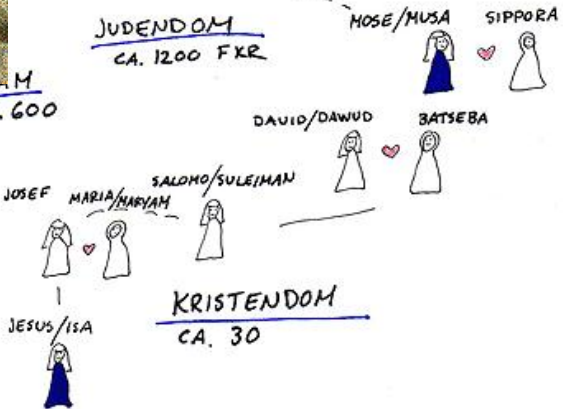 JUDENDOM
CA. 1200 FKR
MOSE/MUSA SIPPORA
600
DAVID/DAWUD BATSEBA
JOSEF MARIA/MARYAM SALOMO/SULEIMAN
KRISTENDOM
CA. 30
JESUS/ISA